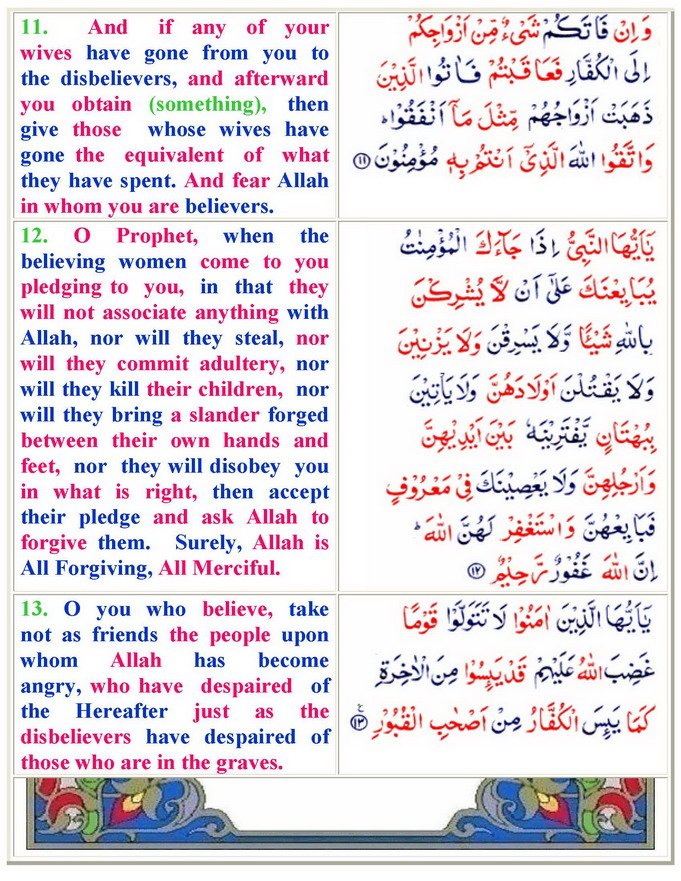 11. And if any of your
wives have gone from you to
the disbelievers, and afterward
you obtain (something), then
give those whose wives have
gone the equivalent of what
they have spent. And fear Allah
in whom you are believers.
وَاِنْ فَاتَكُمْ شَىْءٌ مِّنْ اَزْوَاجِكُمْ
اِلَى الْكُفَّارِ فَعَاقَبْتُمْ فَاٰتُوا الَّذِيْنَ
ذَهَبَتْ اَزْوَاجُهُمْ مِّثْلَ مَاۤ اَنْفَقُوْا ؕ
وَاتَّقُوا اللّٰهَ الَّذِىْۤ اَنْتُمْ بِهٖ مُؤْمِنُوْنَ ۝۱۱
12. O Prophet, when the
believing women come to you
pledging to you, in that they
will not associate anything with
Allah, nor will they steal, nor
will they commit adultery, nor
will they kill their children, nor
will they bring a slander forged
between their own hands and
feet, nor they will disobey you
in what is right, then accept
their pledge and ask Allah to
forgive them. Surely, Allah is
All Forgiving, All Merciful.
يٰۤاَيُّهَا النَّبِىُّ اِذَا جَآءَكَ الْمُؤْمِنٰتُ
يُبَايِعْنَكَ عَلٰٓى اَنْ لَّا يُشْرِكْنَ
بِاللّٰهِ شَيْئًا وَّلَا يَسْرِقْنَ وَلَا يَزْنِيْنَ
وَلَا يَقْتُلْنَ اَوْلَادَهُنَّ وَلَا يَاْتِيْنَ
بِبُهْتَانٍ يَّفْتَرِيْنَهٗ بَيْنَ اَيْدِيْهِنَّ
وَاَرْجُلِهِنَّ وَلَا يَعْصِيْنَكَ فِىْ مَعْرُوْفٍ
فَبَايِعْهُنَّ وَاسْتَغْفِرْ لَهُنَّ اللّٰهَ ؕ
اِنَّ اللّٰهَ غَفُوْرٌ رَّحِيْمٌ ۝۱۲
13. O you who believe, take
not as friends the people upon
whom Allah has become
angry, who have despaired of
the Hereafter just as the
disbelievers have despaired of
those who are in the graves.
يٰۤاَيُّهَا الَّذِيْنَ اٰمَنُوْا لَا تَتَوَلَّوْا قَوْمًا
غَضِبَ اللّٰهُ عَلَيْهِمْ قَدْ يَئِسُوْا مِنَ الْاٰخِرَةِ
كَمَا يَئِسَ الْكُفَّارُ مِنْ اَصْحٰبِ الْقُبُوْرِ ۝۱۳ ع